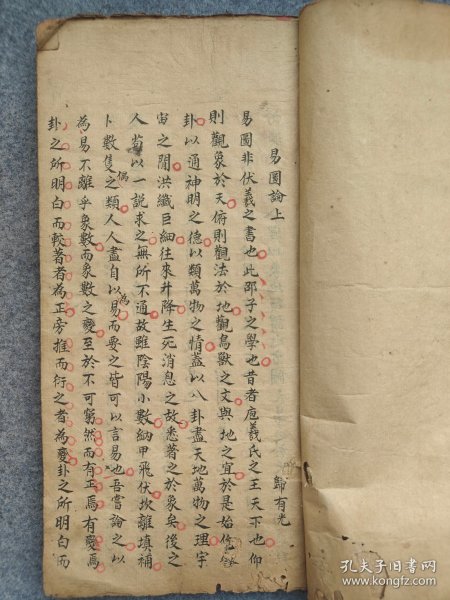 易圖論上
歸有光
易圖非伏羲之書也此邵子之學也昔者庖羲氏之王天下也仰
則觀象於天俯則觀法於地觀鳥獸之文與地之宜於是始作
卦以通神明之德以類萬物之情蓋以八卦盡天地萬物之理宇
宙之間洪纖巨細往來升降生死消息之故悉著之於象矣後之
人苟以一説求之無所不通故雖陰陽小數納甲飛伏坎離填補
卜數隻偶之類人人盡自以為易而要之皆可以言易也吾嘗論之以
為易不離乎象數而象數之變至於不可窮然而有正焉有變焉
卦之所明白而較著者為正旁推而衍之者為變卦之所明白而
孔夫子旧书网